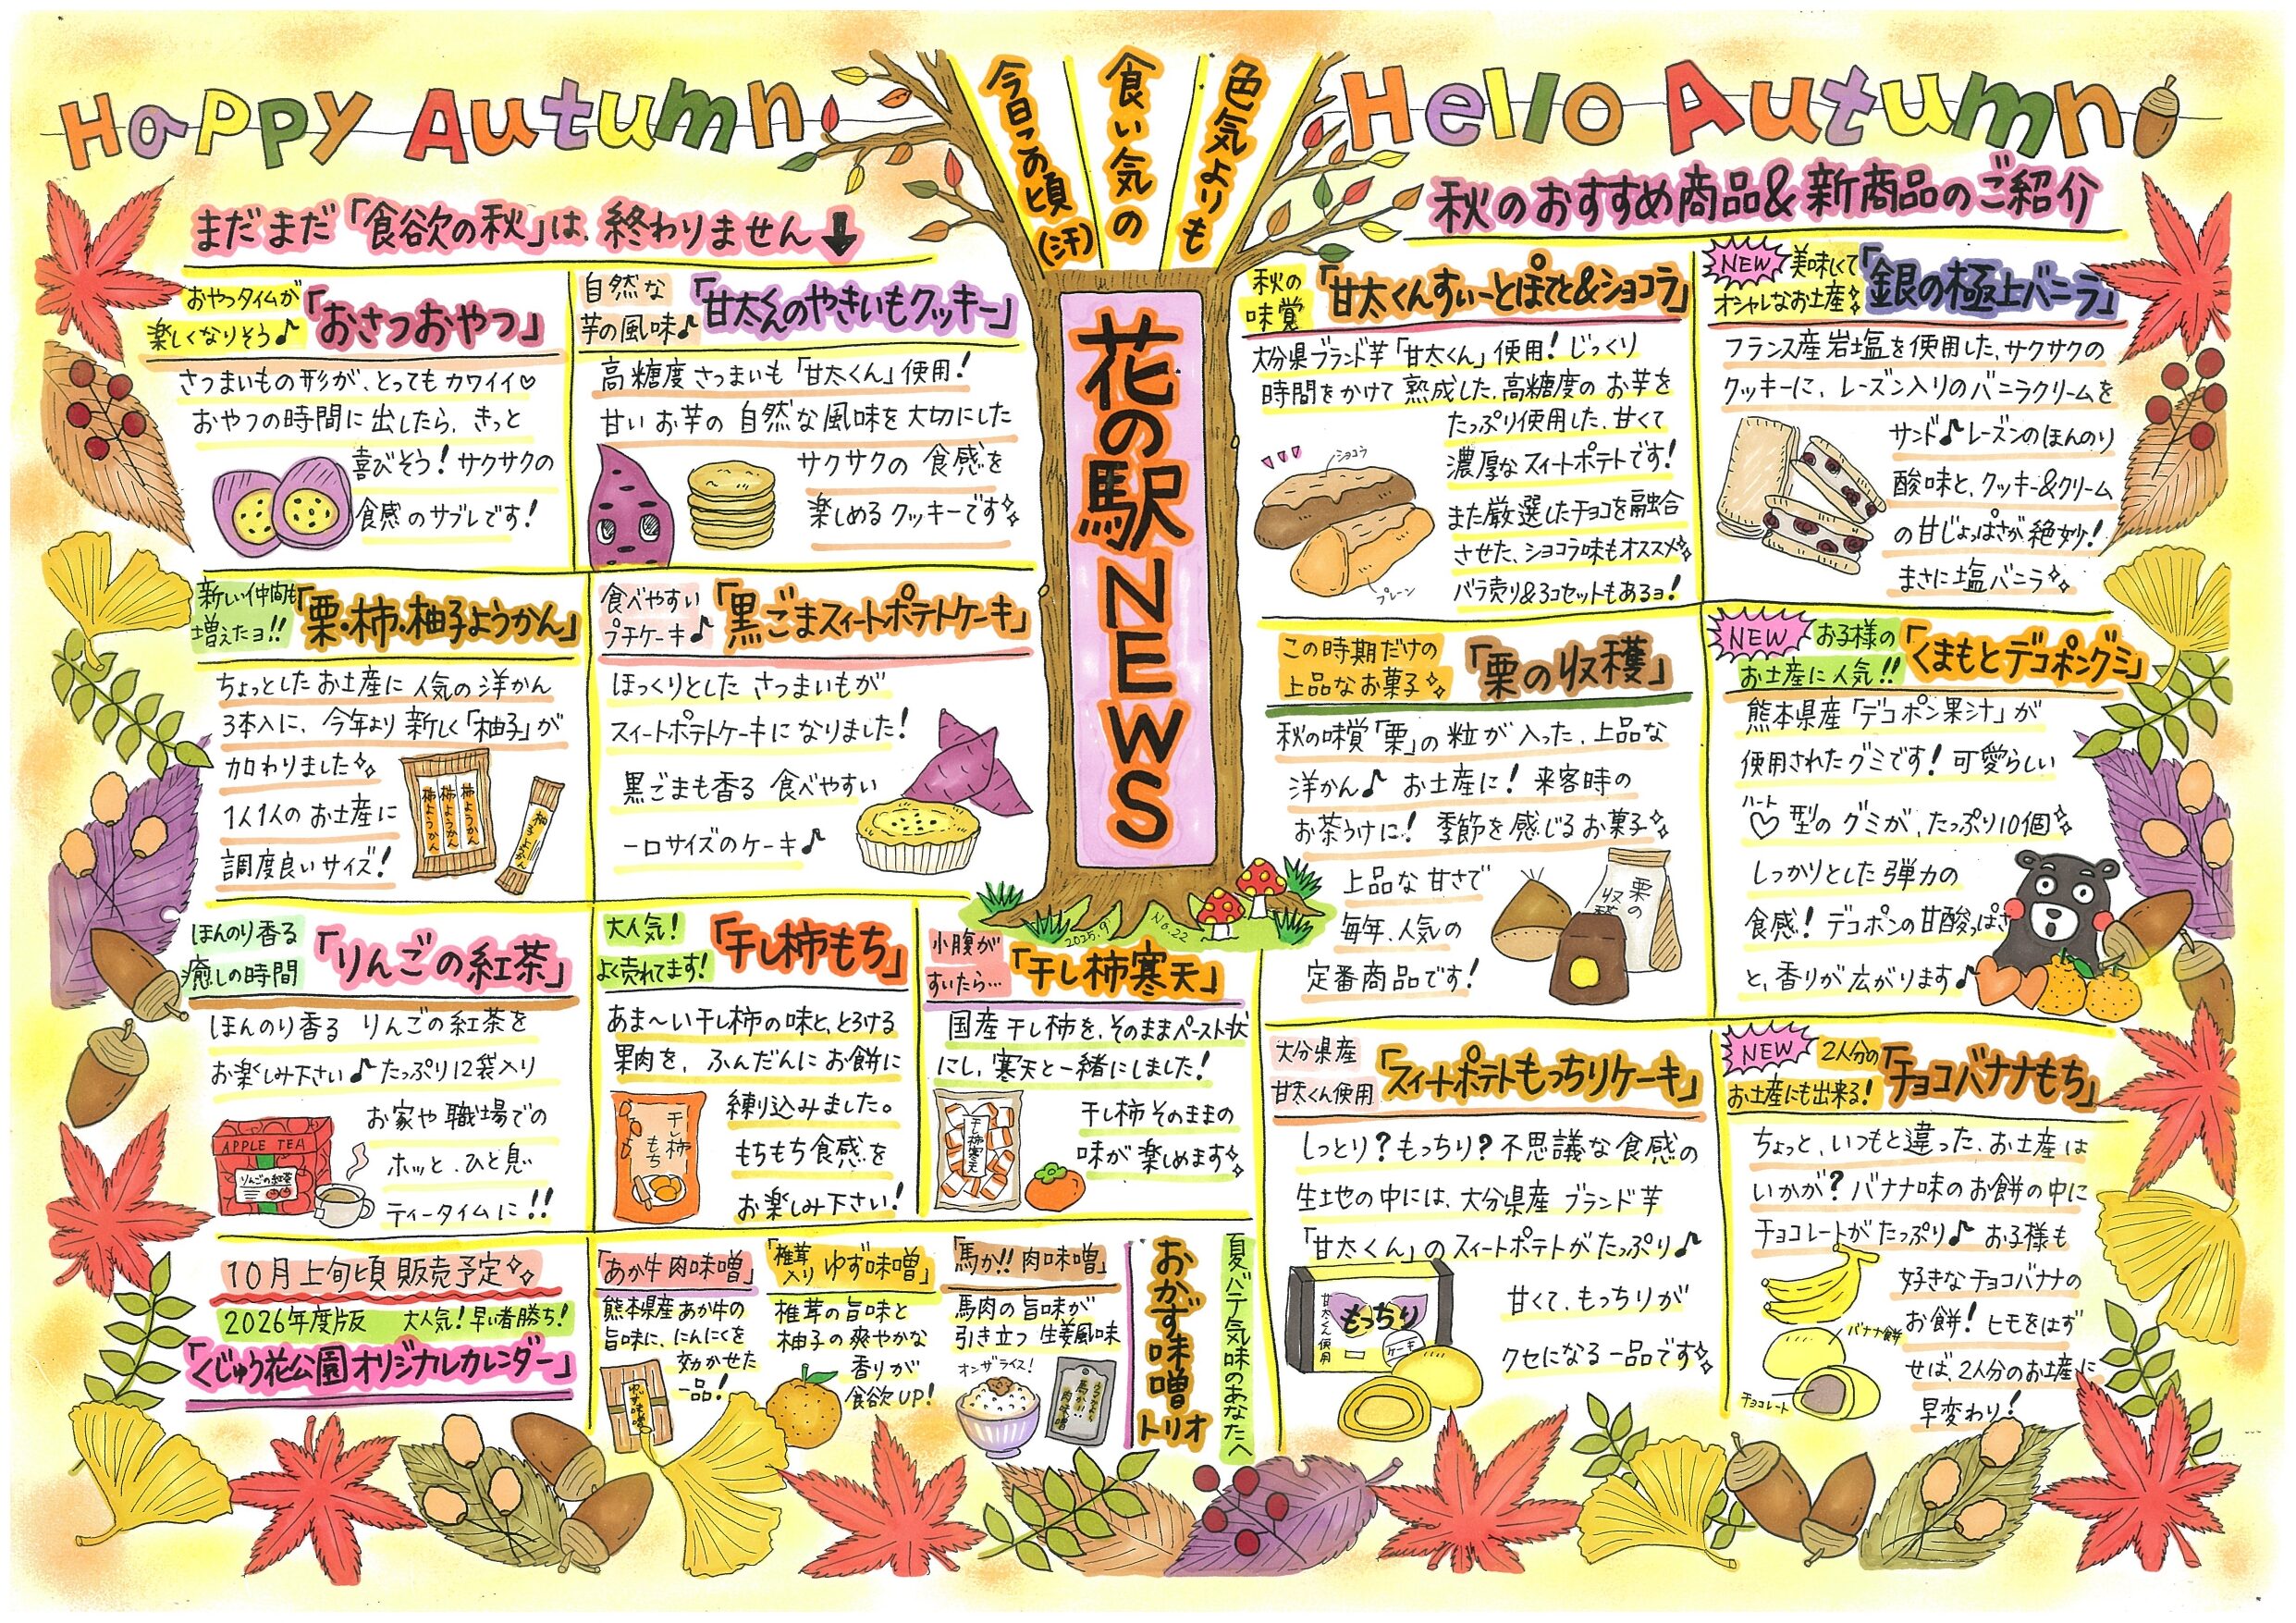 Happy Autumn
まだまだ「食欲の秋」は、終わりません↓
色気よりも
食い気の
今日この頃
(汗)
花の駅NEWS
2025.9
No.22
Hello Autumn
秋のおすすめ商品&新商品のご紹介
おやつタイムが
楽しくなりそう♪
「おさつおやつ」
さつまいもの形が、とってもカワイイ♡
おやつの時間に出したら、きっと
喜びそう!サクサクの
食感のサブレです!
自然な
芋の風味♪
「甘太くんのやきいもクッキー」
高糖度さつまいも「甘太くん」使用!
甘いお芋の自然な風味を大切にした
サクサクの食感を
楽しめるクッキーです
新しい仲間も
増えたヨ!!
「栗・柿・柚子ようかん」
ちょっとしたお土産に人気の洋かん
3本入に、今年より新しく「柚子」が
加わりました
1人1人のお土産に
調度良いサイズ!
柿ようかん
柿ようかん
柿ようかん
柚子ようかん
食べやすい
プチケーキ♪
「黒ごまスィートポテトケーキ」
ほっくりとしたさつまいもが
スィートポテトケーキになりました!
黒ごまも香る食べやすい
一口サイズのケーキ♪
ほんのり香る
癒しの時間
「りんごの紅茶」
ほんのり香る りんごの紅茶を
お楽しみ下さい♪たっぷり12袋入り
お家や職場での
ホッと、ひと息
ティータイムに!!
APPLE TEA
りんごの紅茶
大人気!
よく売れてます!
「干し柿もち」
あま〜い干し柿の味と、とろける
果肉を、ふんだんにお餅に
練り込みました。
もちもち食感を
お楽しみ下さい!
干し柿
もち
小腹が
すいたら…
「干し柿寒天」
国産干し柿を、そのままペースト状
にし、寒天と一緒にしました!
干し柿そのままの
味が楽しめます
干し柿寒天
10月上旬頃販売予定
2026年度版 大人気!早い者勝ち!
「くじゅう花公園オリジナルカレンダー」
夏バテ気味のあなたへ
おかず味噌トリオ
「あか牛肉味噌」
熊本県産あか牛の
旨味に、にんにくを
効かせた
一品!
ゆず味噌
「椎茸入りゆず味噌」
椎茸の旨味と
柚子の爽やかな
香りが
食欲UP!
「馬か!!肉味噌」
馬肉の旨味が
引き立つ生姜風味
オンザライス!
秋の
味覚
「甘太くんすぃーとぽてと&ショコラ」
大分県ブランド芋「甘太くん」使用!じっくり
時間をかけて熟成した、高糖度のお芋を
たっぷり使用した、甘くて
濃厚なスィートポテトです!
また厳選したチョコを融合
させた、ショコラ味もオススメ
バラ売り&3コセットもあるョ!
ショコラ
プレーン
NEW
美味しくて
オシャレなお土産
「銀の極上バニラ」
フランス産岩塩を使用した、サクサクの
クッキーに、レーズン入りのバニラクリームを
サンド♪レーズンのほんのり
酸味と、クッキー&クリーム
の甘じょっぱさが絶妙!
まさに塩バニラ
この時期だけの
上品なお菓子
「栗の収穫」
秋の味覚「栗」の粒が入った、上品な
洋かん♪お土産に!来客時の
お茶うけに!季節を感じるお菓子
上品な甘さで
毎年、人気の
定番商品です!
栗の
収穫
NEW
お子様の
お土産に人気!!
「くまもとデコポングミ」
熊本県産「デコポン果汁」が
使用されたグミです!可愛らしい
ハート
♡型のグミが、たっぷり10個
しっかりとした弾力の
食感!デコポンの甘酸っぱさ
と、香りが広がります♪
大分県産
甘太くん使用
「スィートポテトもっちりケーキ」
しっとり?もっちり?不思議な食感の
生地の中には、大分県産ブランド芋
「甘太くん」のスィートポテトがたっぷり♪
甘くて、もっちりが
クセになる一品です
甘太くん使用
もっちり
ケーキ
NEW
2人分の
お土産にも出来る!
「チョコバナナもち」
ちょっと、いつもと違った、お土産は
いかが?バナナ味のお餅の中に
チョコレートがたっぷり♪お子様も
好きなチョコバナナの
お餅!ヒモをはず
せば、2人分のお土産に
早変わり!
バナナ餅
チョコレート